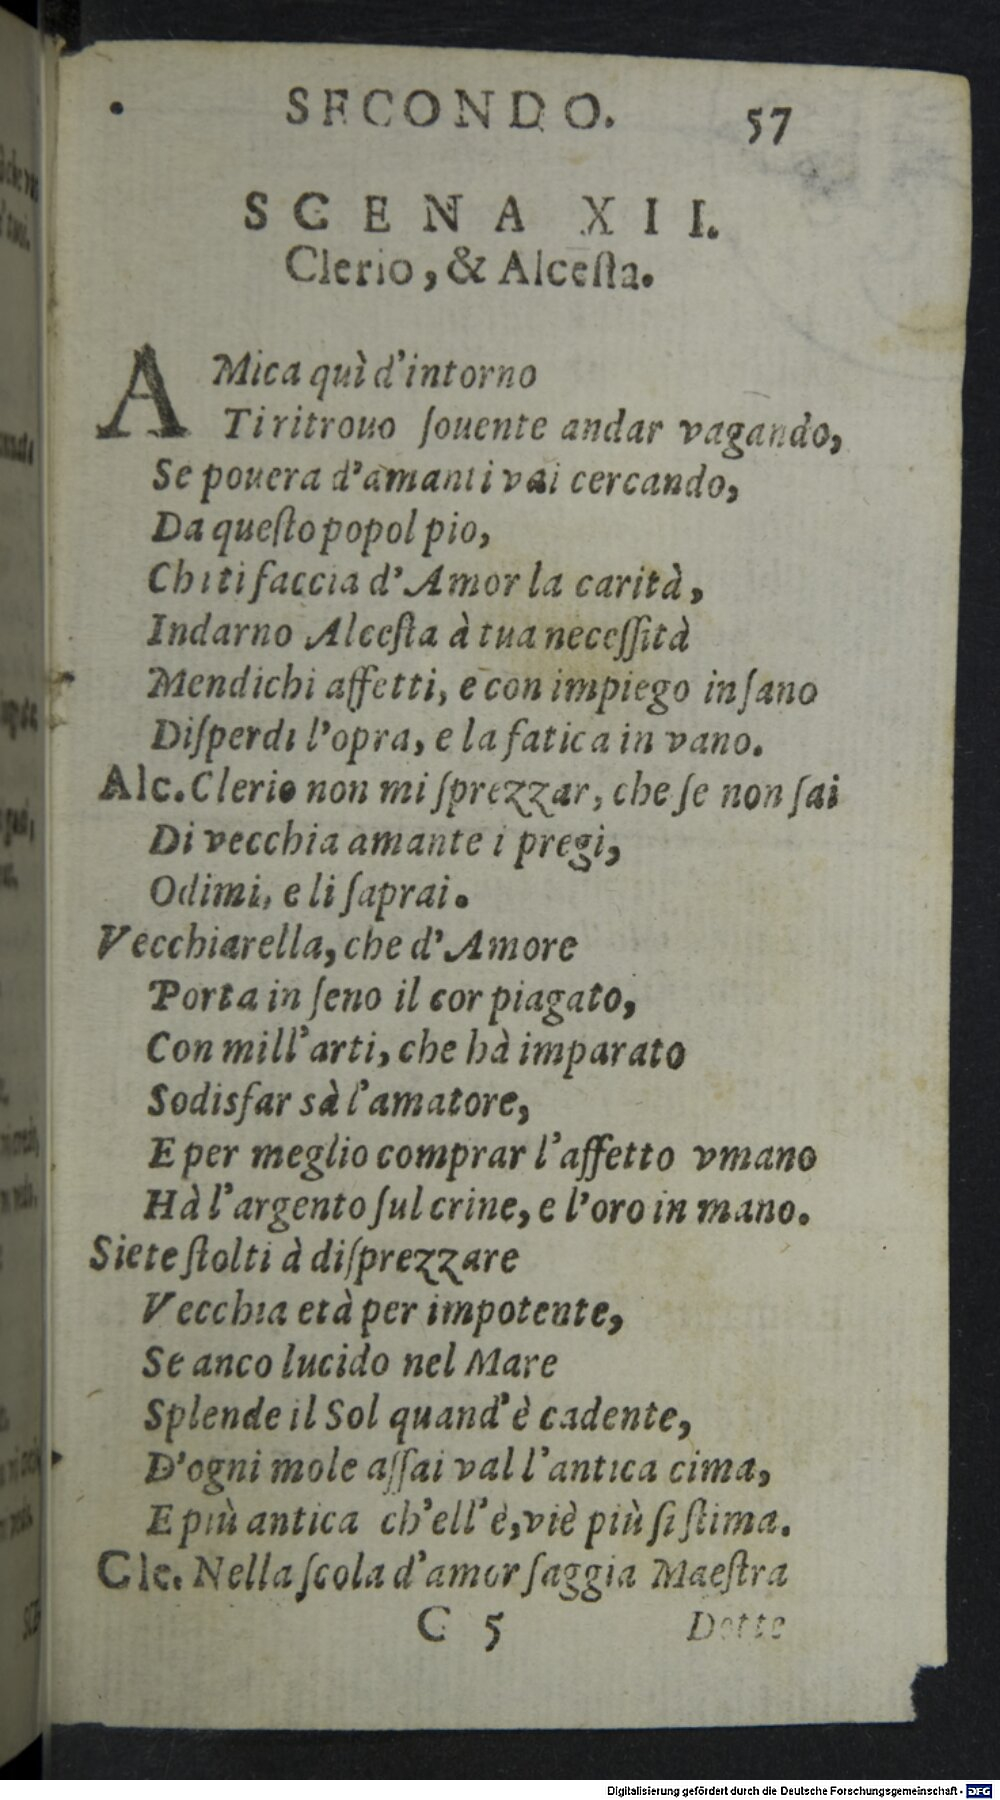 SECONDO. 57
SCENA XII.
Clerio, & Alceſta.
AMica quì d'intorno
Ti ritrouo ſouente andar vagando,
Se pouera d'amanti vai cercando,
Da queſto popol pio,
Chi ti faccia d'Amor la carità,
Indarno Alceſta à tua neceſſità
Mendichi affetti, e con impiego inſano
Diſperdi l'opra, e la fatica in vano.
Alc. Clerio non mi ſprezzar, che ſe non ſai
Di vecchia amante i pregi,
Odimi, e li ſaprai.
Vecchiarella, che d'Amore
Porta in ſeno il cor piagato,
Con mill'arti, che hà imparato
Sodisfar sà l'amatore,
E per meglio comprar l'affetto vmano
Hà l'argento ſul crine, e l'oro in mano.
Siete ſtolti à diſprezzare
Vecchia età per impotente,
Se anco lucido nel Mare
Splende il Sol quand'è cadente,
D'ogni mole aſſai val l'antica cima,
E più antica ch'ell'è, viè più ſi ſtima.
Cle. Nella ſcola d'amor ſaggia Maeſtra
C 5 Dotte
Digitalisierung gefördert durch die Deutsche Forschungsgemeinschaft - DFG